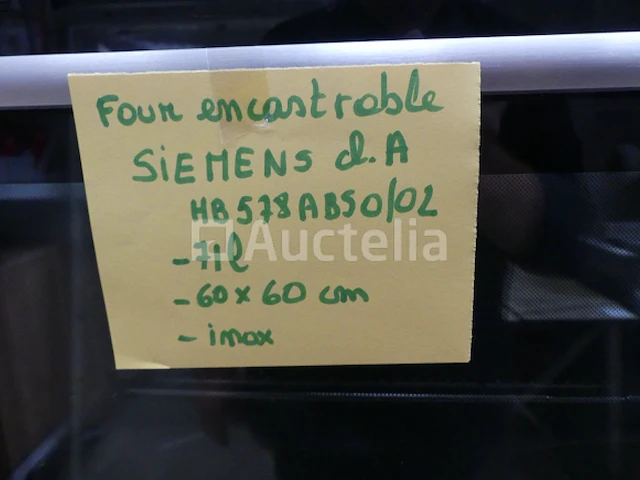 Four encastrable
SIEMENS cl.A
HB578ABS0/02
Auctelia
- 71l
- 60 x 60 cm
- inox